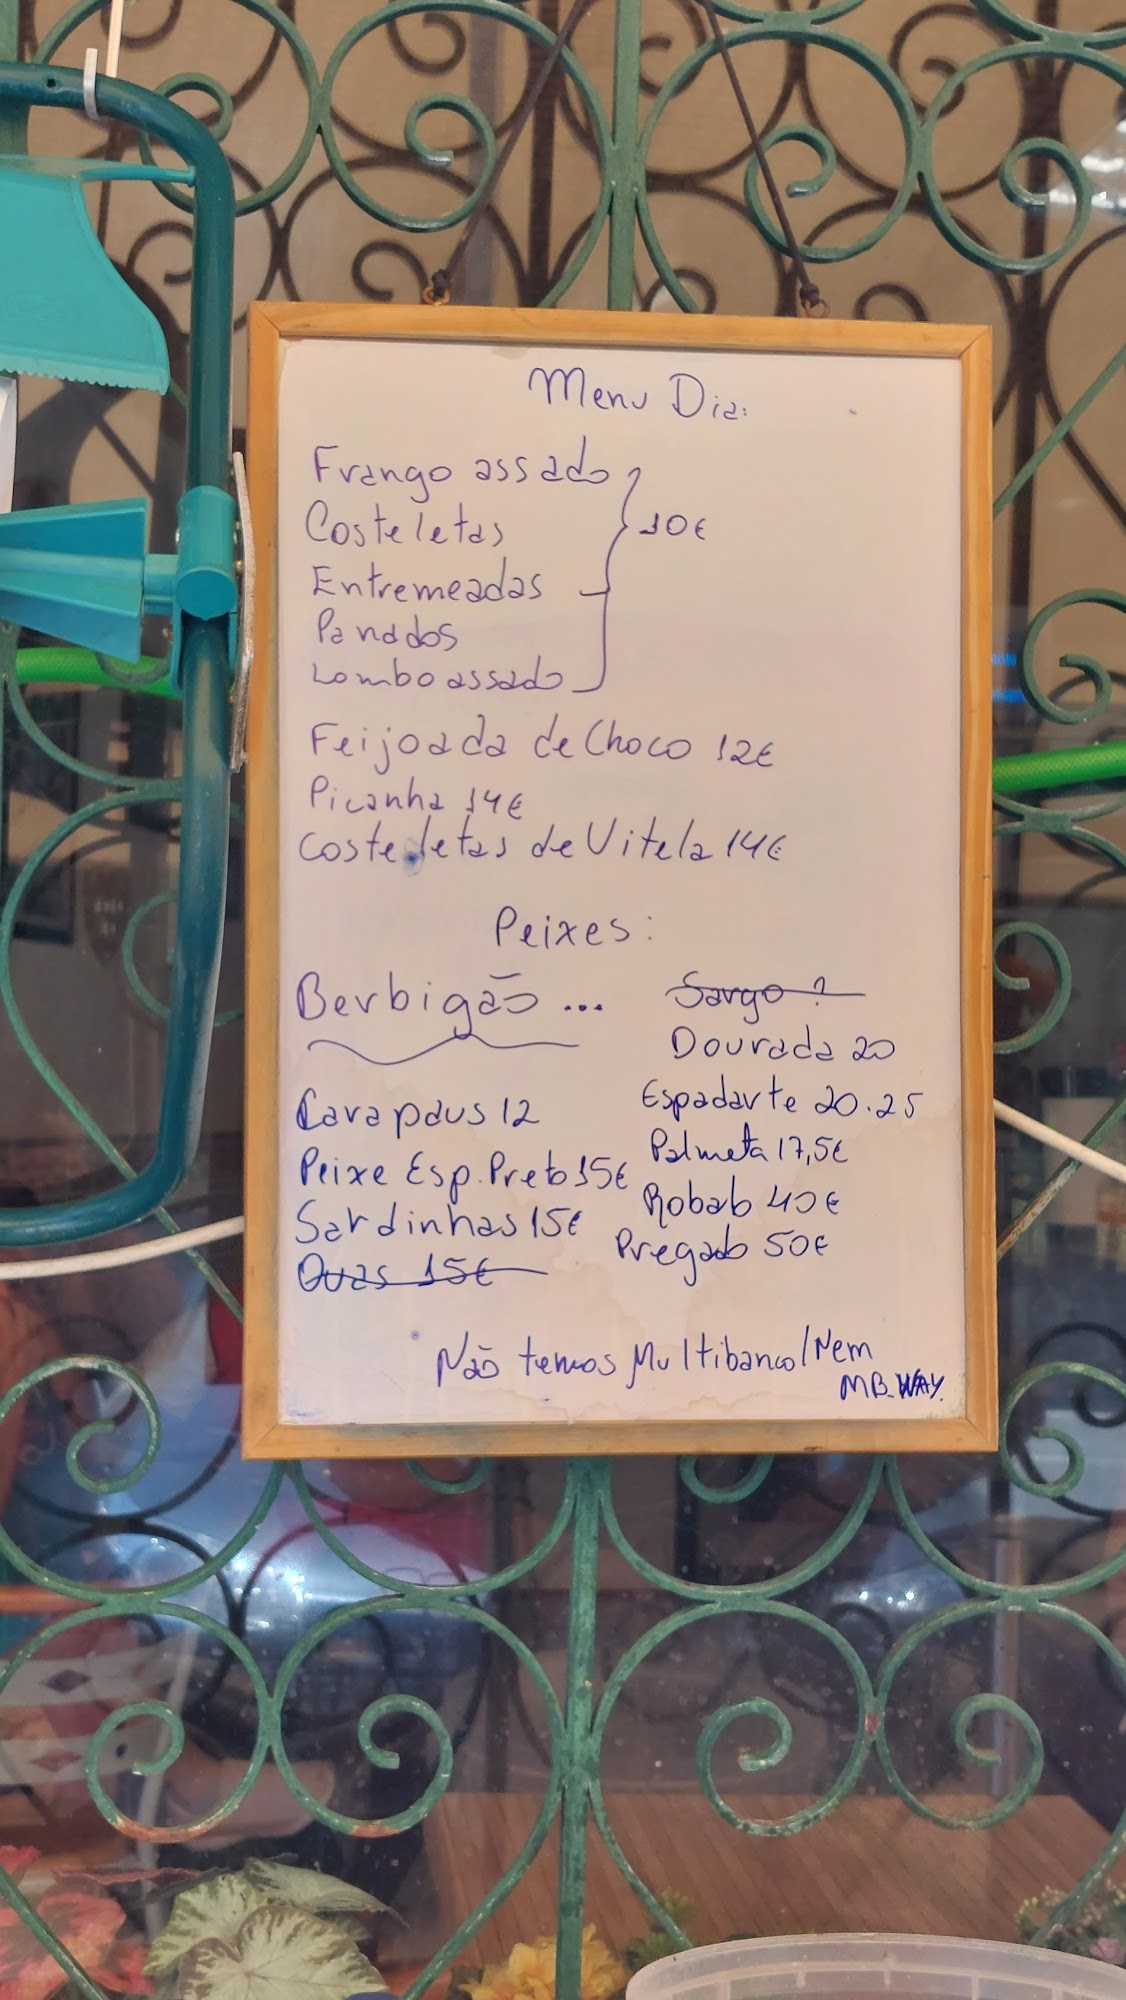 Menu Dia:
Frango assado
Costeletas
Entremeadas
Panados
Lombo assado
10€
Feijoada de Choco 12€
Picanha 14€
Costeletas de Vitela 14€
Peixes:
Berbigão ...
Carapaus 12
Peixe Esp. Preto 15€
Sardinhas 15€
Ovas 15€
Sargo ?
Dourada 20
Espadarte 20.25
Palmeta 17,5€
Robalo 40€
Pregado 50€
Não temos Multibanco/Nem
MB.WAY.